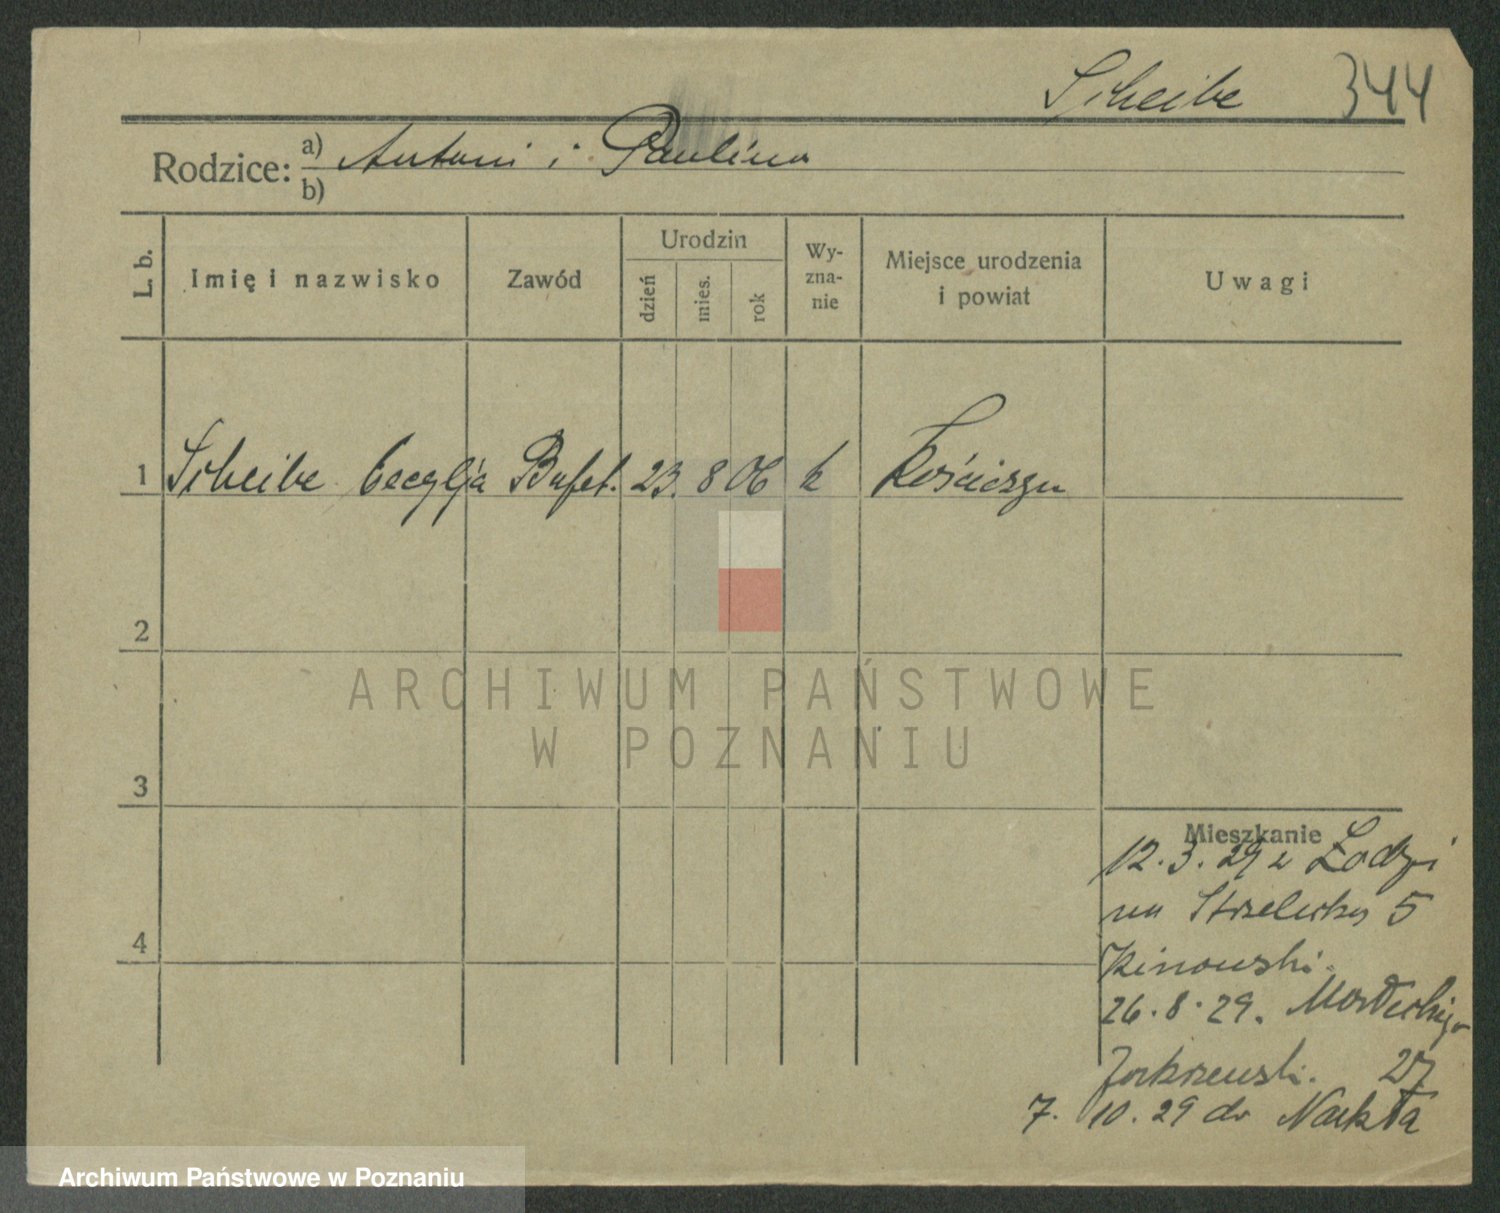 Scheibe 344
Rodzice: a) Antoni i Paulina
b)
L. b.
Imię i nazwisko
Zawód
Urodzin
dzień
mies.
rok
Wy-
zna-
nie
Miejsce urodzenia
i powiat
Uwagi
1 Scheibe Cecylja Bufet. 23. 8 06 k Kościeszyn
2
3
4
ARCHIWUM PAŃSTWOWE
W POZNANIU
Mieszkanie
12.3.29 z Łodzi
na Strzelecką 5
Kinowski.
26.8.29.
Zakrzewski. 27
7. 10. 29 do Nakła
Archiwum Państwowe w Poznaniu